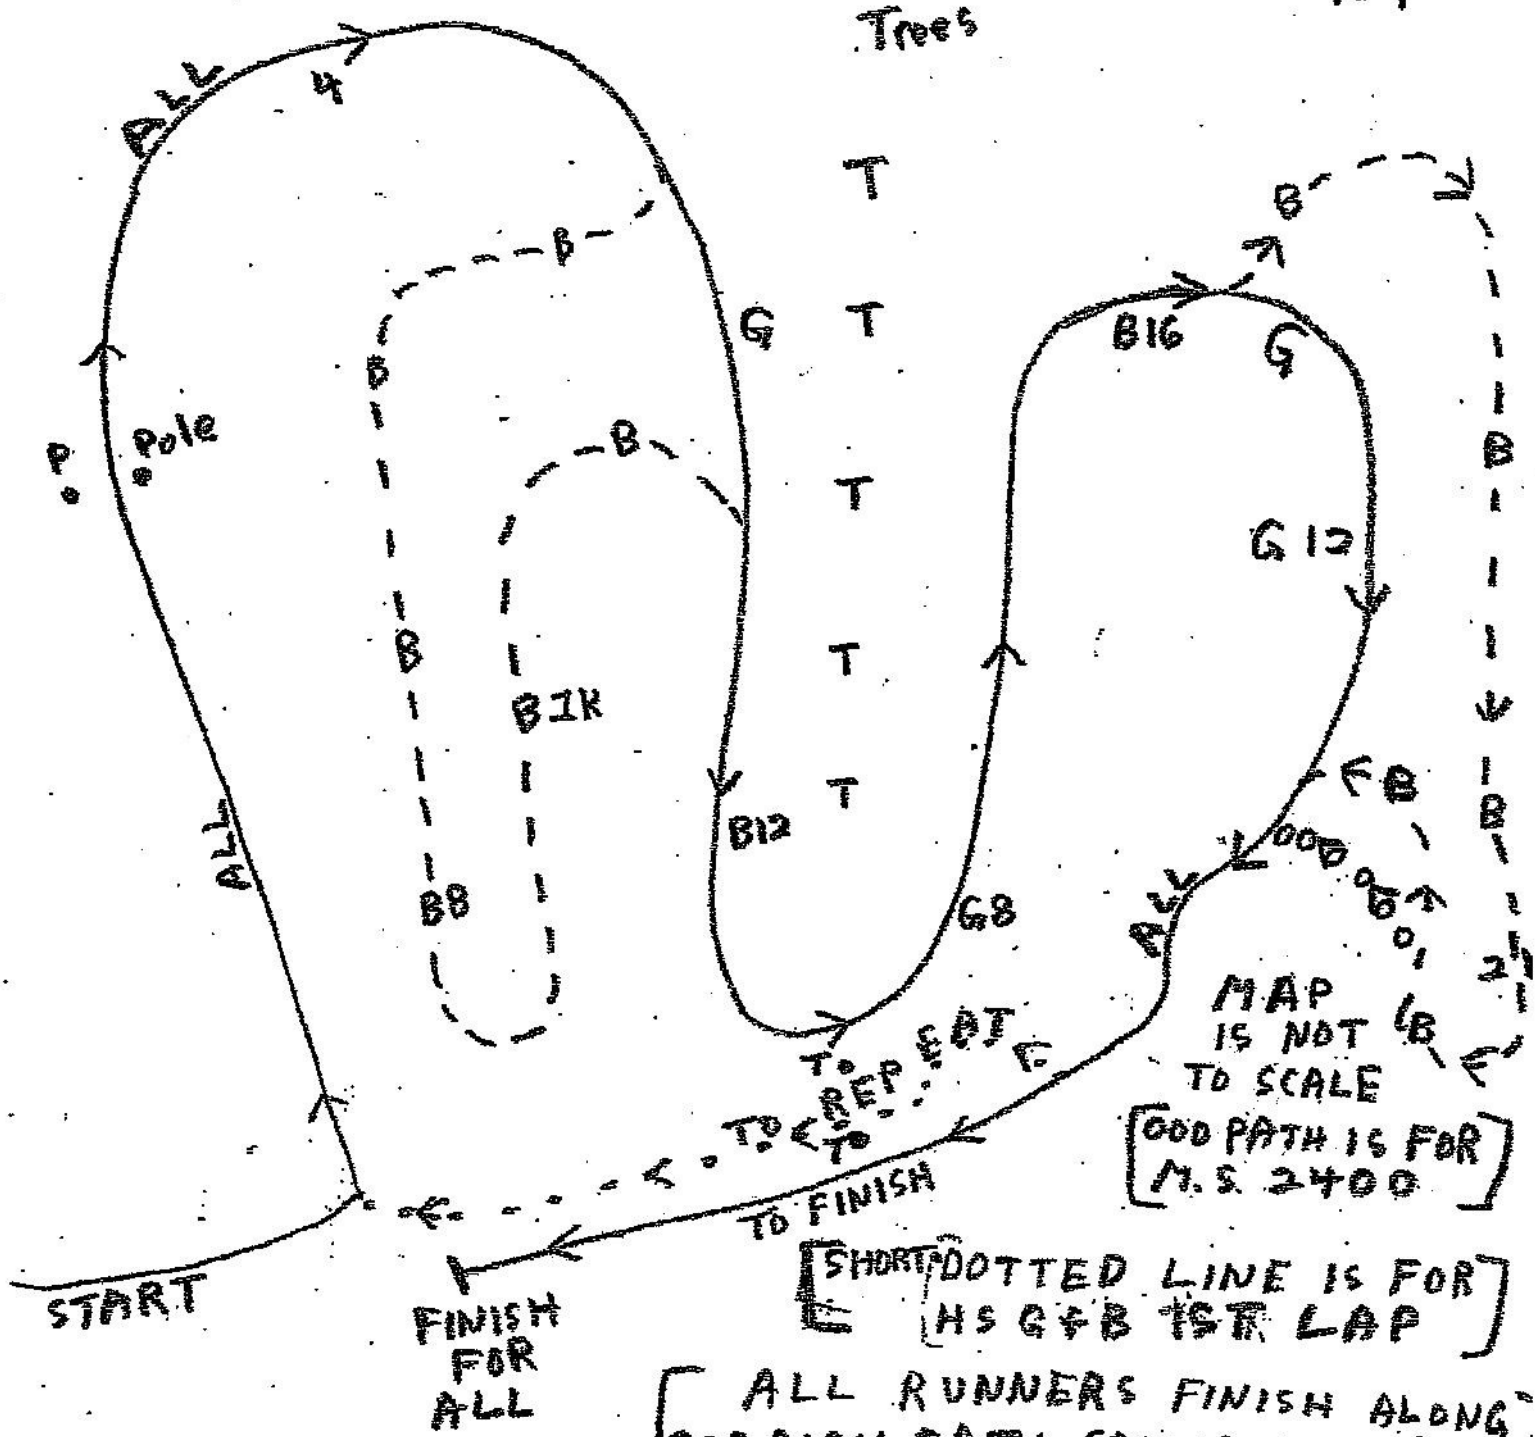 Trees
ALL
4
T
B
B
G
T
B16
G
B
P
Pole
B
B
T
G 12
B
T
B
B 1K
T
B12
B
B
ALL
B8
G8
ALL
2
MAP
IS NOT
TO SCALE
B
TO REPEAT
TO FINISH
[OOO PATH IS FOR
M.S. 2400]
START
FINISH
FOR
ALL
[SHORT DOTTED LINE IS FOR
HS G&B 1ST LAP]
[ALL RUNNERS FINISH ALONG